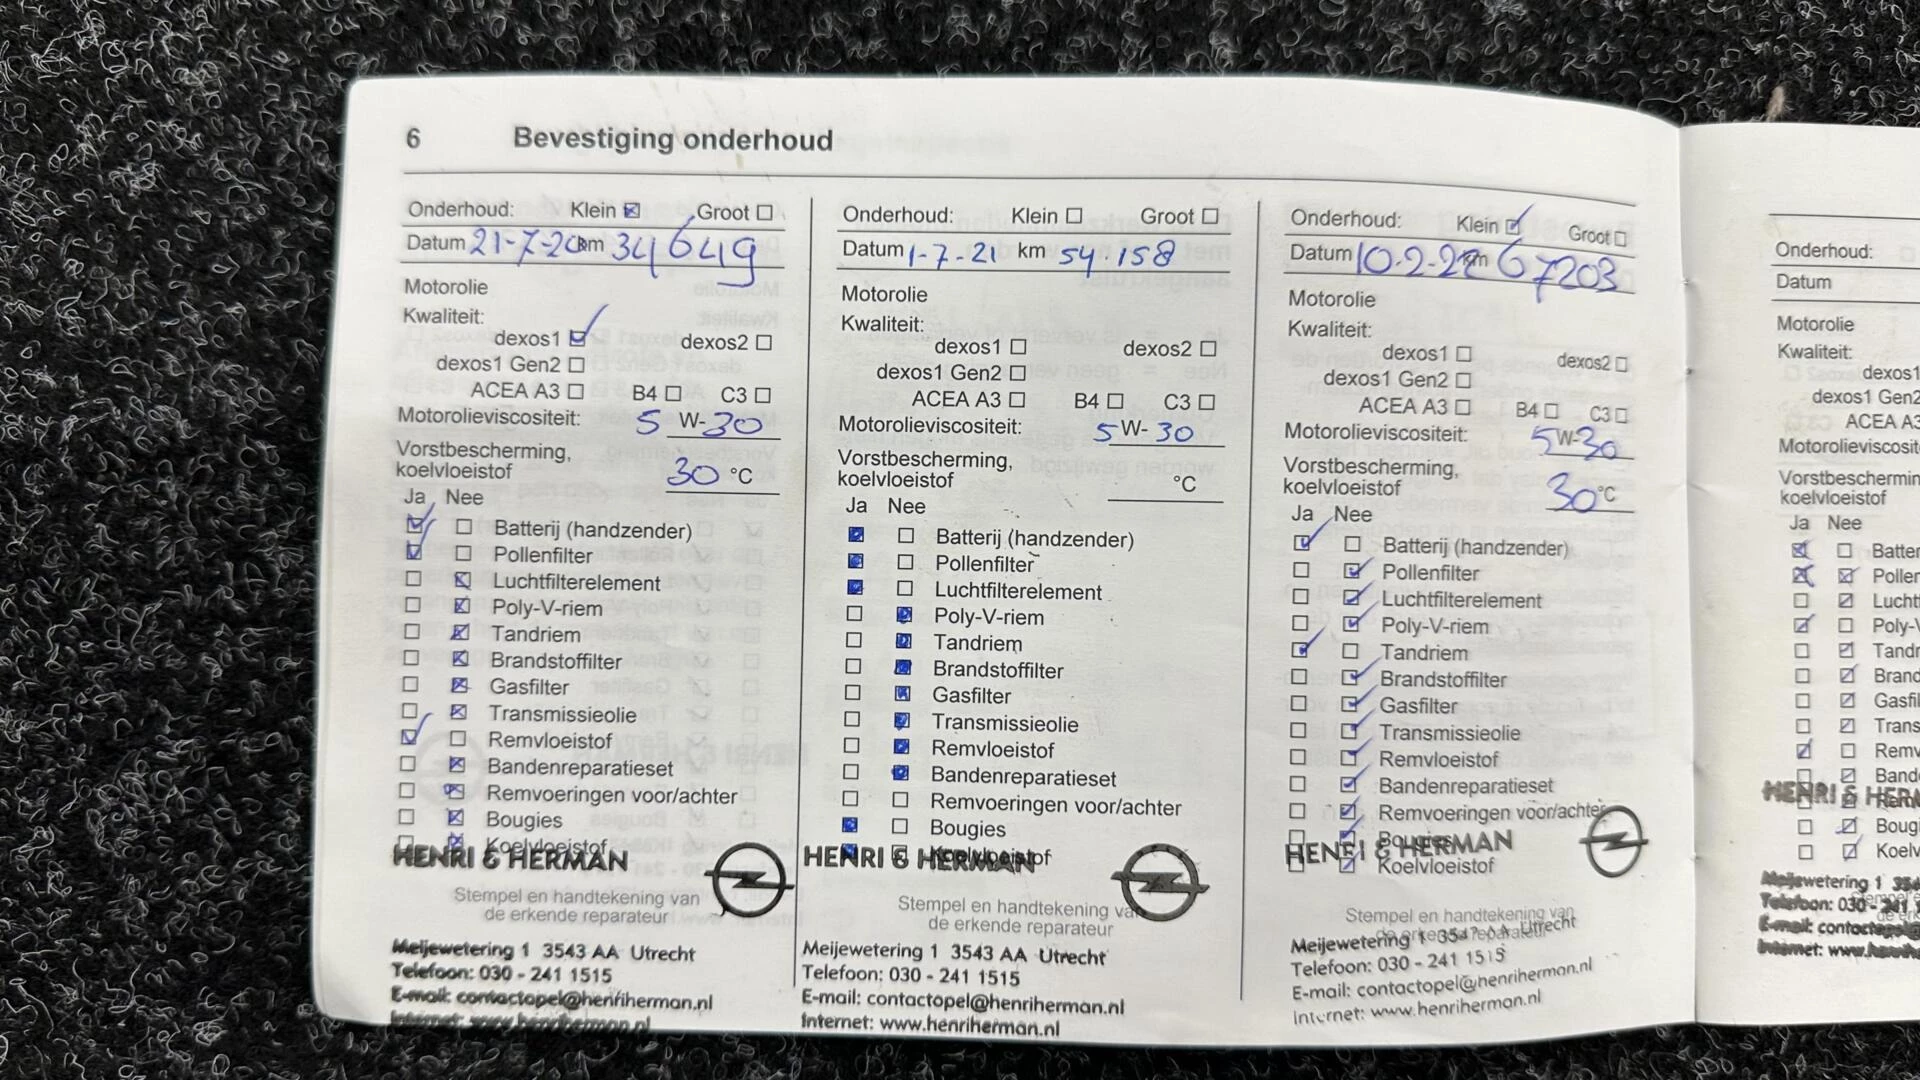 6 Bevestiging onderhoud
Onderhoud: Klein ☒ Groot ☐
Datum 21-7-20 km 34649
Motorolie
Kwaliteit:
dexos1 ☑ dexos2 ☐
dexos1 Gen2 ☐
ACEA A3 ☐ B4 ☐ C3 ☐
Motorolieviscositeit: 5 W-30
Vorstbescherming,
koelvloeistof 30 °C
Ja Nee
☑ ☐ Batterij (handzender)
☑ ☐ Pollenfilter
☐ ☒ Luchtfilterelement
☐ ☒ Poly-V-riem
☐ ☒ Tandriem
☐ ☒ Brandstoffilter
☐ ☒ Gasfilter
☐ ☒ Transmissieolie
☑ ☐ Remvloeistof
☐ ☒ Bandenreparatieset
☐ ☒ Remvoeringen voor/achter
☐ ☒ Bougies
☐ ☒ Koelvloeistof
HENRI & HERMAN
Stempel en handtekening van
de erkende reparateur
Meijewetering 1 3543 AA Utrecht
Telefoon: 030 - 241 1515
E-mail: contactopel@henriherman.nl
Internet: www.henriherman.nl
Onderhoud: Klein ☐ Groot ☐
Datum 1-7-21 km 54.158
Motorolie
Kwaliteit:
dexos1 ☐ dexos2 ☐
dexos1 Gen2 ☐
ACEA A3 ☐ B4 ☐ C3 ☐
Motorolieviscositeit: 5 W-30
Vorstbescherming,
koelvloeistof °C
Ja Nee
☒ ☐ Batterij (handzender)
☒ ☐ Pollenfilter
☒ ☐ Luchtfilterelement
☐ ☒ Poly-V-riem
☐ ☒ Tandriem
☐ ☒ Brandstoffilter
☐ ☒ Gasfilter
☐ ☒ Transmissieolie
☐ ☒ Remvloeistof
☐ ☒ Bandenreparatieset
☐ ☐ Remvoeringen voor/achter
☒ ☐ Bougies
☒ ☐ Koelvloeistof
HENRI & HERMAN
Stempel en handtekening van
de erkende reparateur
Meijewetering 1 3543 AA Utrecht
Telefoon: 030 - 241 1515
E-mail: contactopel@henriherman.nl
Internet: www.henriherman.nl
Onderhoud: Klein ☑ Groot ☐
Datum 10-2-22 km 67203
Motorolie
Kwaliteit:
dexos1 ☐ dexos2 ☐
dexos1 Gen2 ☐
ACEA A3 ☐ B4 ☐ C3 ☐
Motorolieviscositeit: 5W-30
Vorstbescherming,
koelvloeistof 30 °C
Ja Nee
☑ ☐ Batterij (handzender)
☐ ☑ Pollenfilter
☐ ☑ Luchtfilterelement
☐ ☑ Poly-V-riem
☑ ☐ Tandriem
☐ ☑ Brandstoffilter
☐ ☑ Gasfilter
☐ ☑ Transmissieolie
☐ ☑ Remvloeistof
☐ ☑ Bandenreparatieset
☐ ☑ Remvoeringen voor/achter
☐ ☑ Bougies
☐ ☑ Koelvloeistof
HENRI & HERMAN
Stempel en handtekening van
de erkende reparateur
Meijewetering 1 AA Utrecht
Telefoon: 030 - 241 1515
E-mail: contactopel@henriherman.nl
Internet: www.henriherman.nl
Onderhoud:
Datum
Motorolie
Kwaliteit:
dexos1
dexos1 Gen2
ACEA A3
Motorolieviscosit
Vorstbeschermin
koelvloeistof
Ja Nee
☒ ☐ Batter
☒ ☒ Pollen
☐ ☑ Lucht
☑ ☐ Poly-V
☐ ☑ Tandr
☐ ☑ Brand
☐ ☑ Gasfi
☐ ☑ Trans
☑ ☐ Remv
☐ ☑ Band
☐ ☑ Remv
☐ ☑ Bougi
☐ ☑ Koelv
HENRI & HERM
Meijewetering 1 354
Telefoon: 030 - 241 1
E-mail: contactopel@
Internet: www.henrih